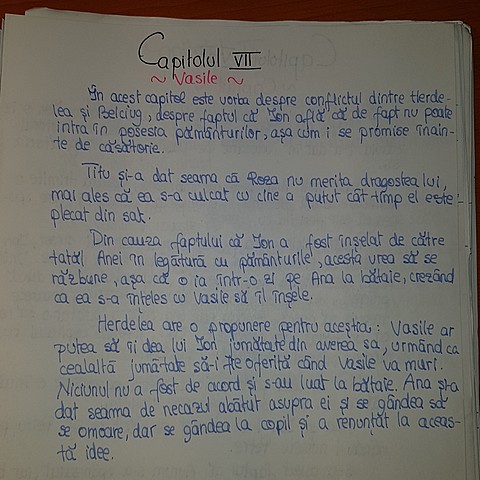 Capitolul VII
~ Vasile ~
În acest capitol este vorba despre conflictul dintre Herde-
lea și Belciug, despre faptul că Ion află că de fapt nu poate
intra în posesia pământurilor, așa cum i se promise înain-
te de căsătorie.
Titu și-a dat seama că Roza nu merita dragostea lui,
mai ales că ea s-a culcat cu cine a putut cât timp el este
plecat din sat.
Din cauza faptului că Ion a fost înșelat de către
tatăl Anei în legătură cu pământurile, acesta vrea să se
răzbune, așa că o ia într-o zi pe Ana la bătaie, crezând
ca ea s-a înțeles cu Vasile să îl înșele.
Herdelea are o propunere pentru aceștia: Vasile ar
putea să îi dea lui Ion jumătate din averea sa, urmând ca
cealaltă jumătate să-i fie oferită când Vasile va muri.
Niciunul nu a fost de acord și s-au luat la bătaie. Ana și-a
dat seama de necazul abătut asupra ei și se gândea să
se omoare, dar se gândea la copil și a renunțat la aceas-
tă idee.